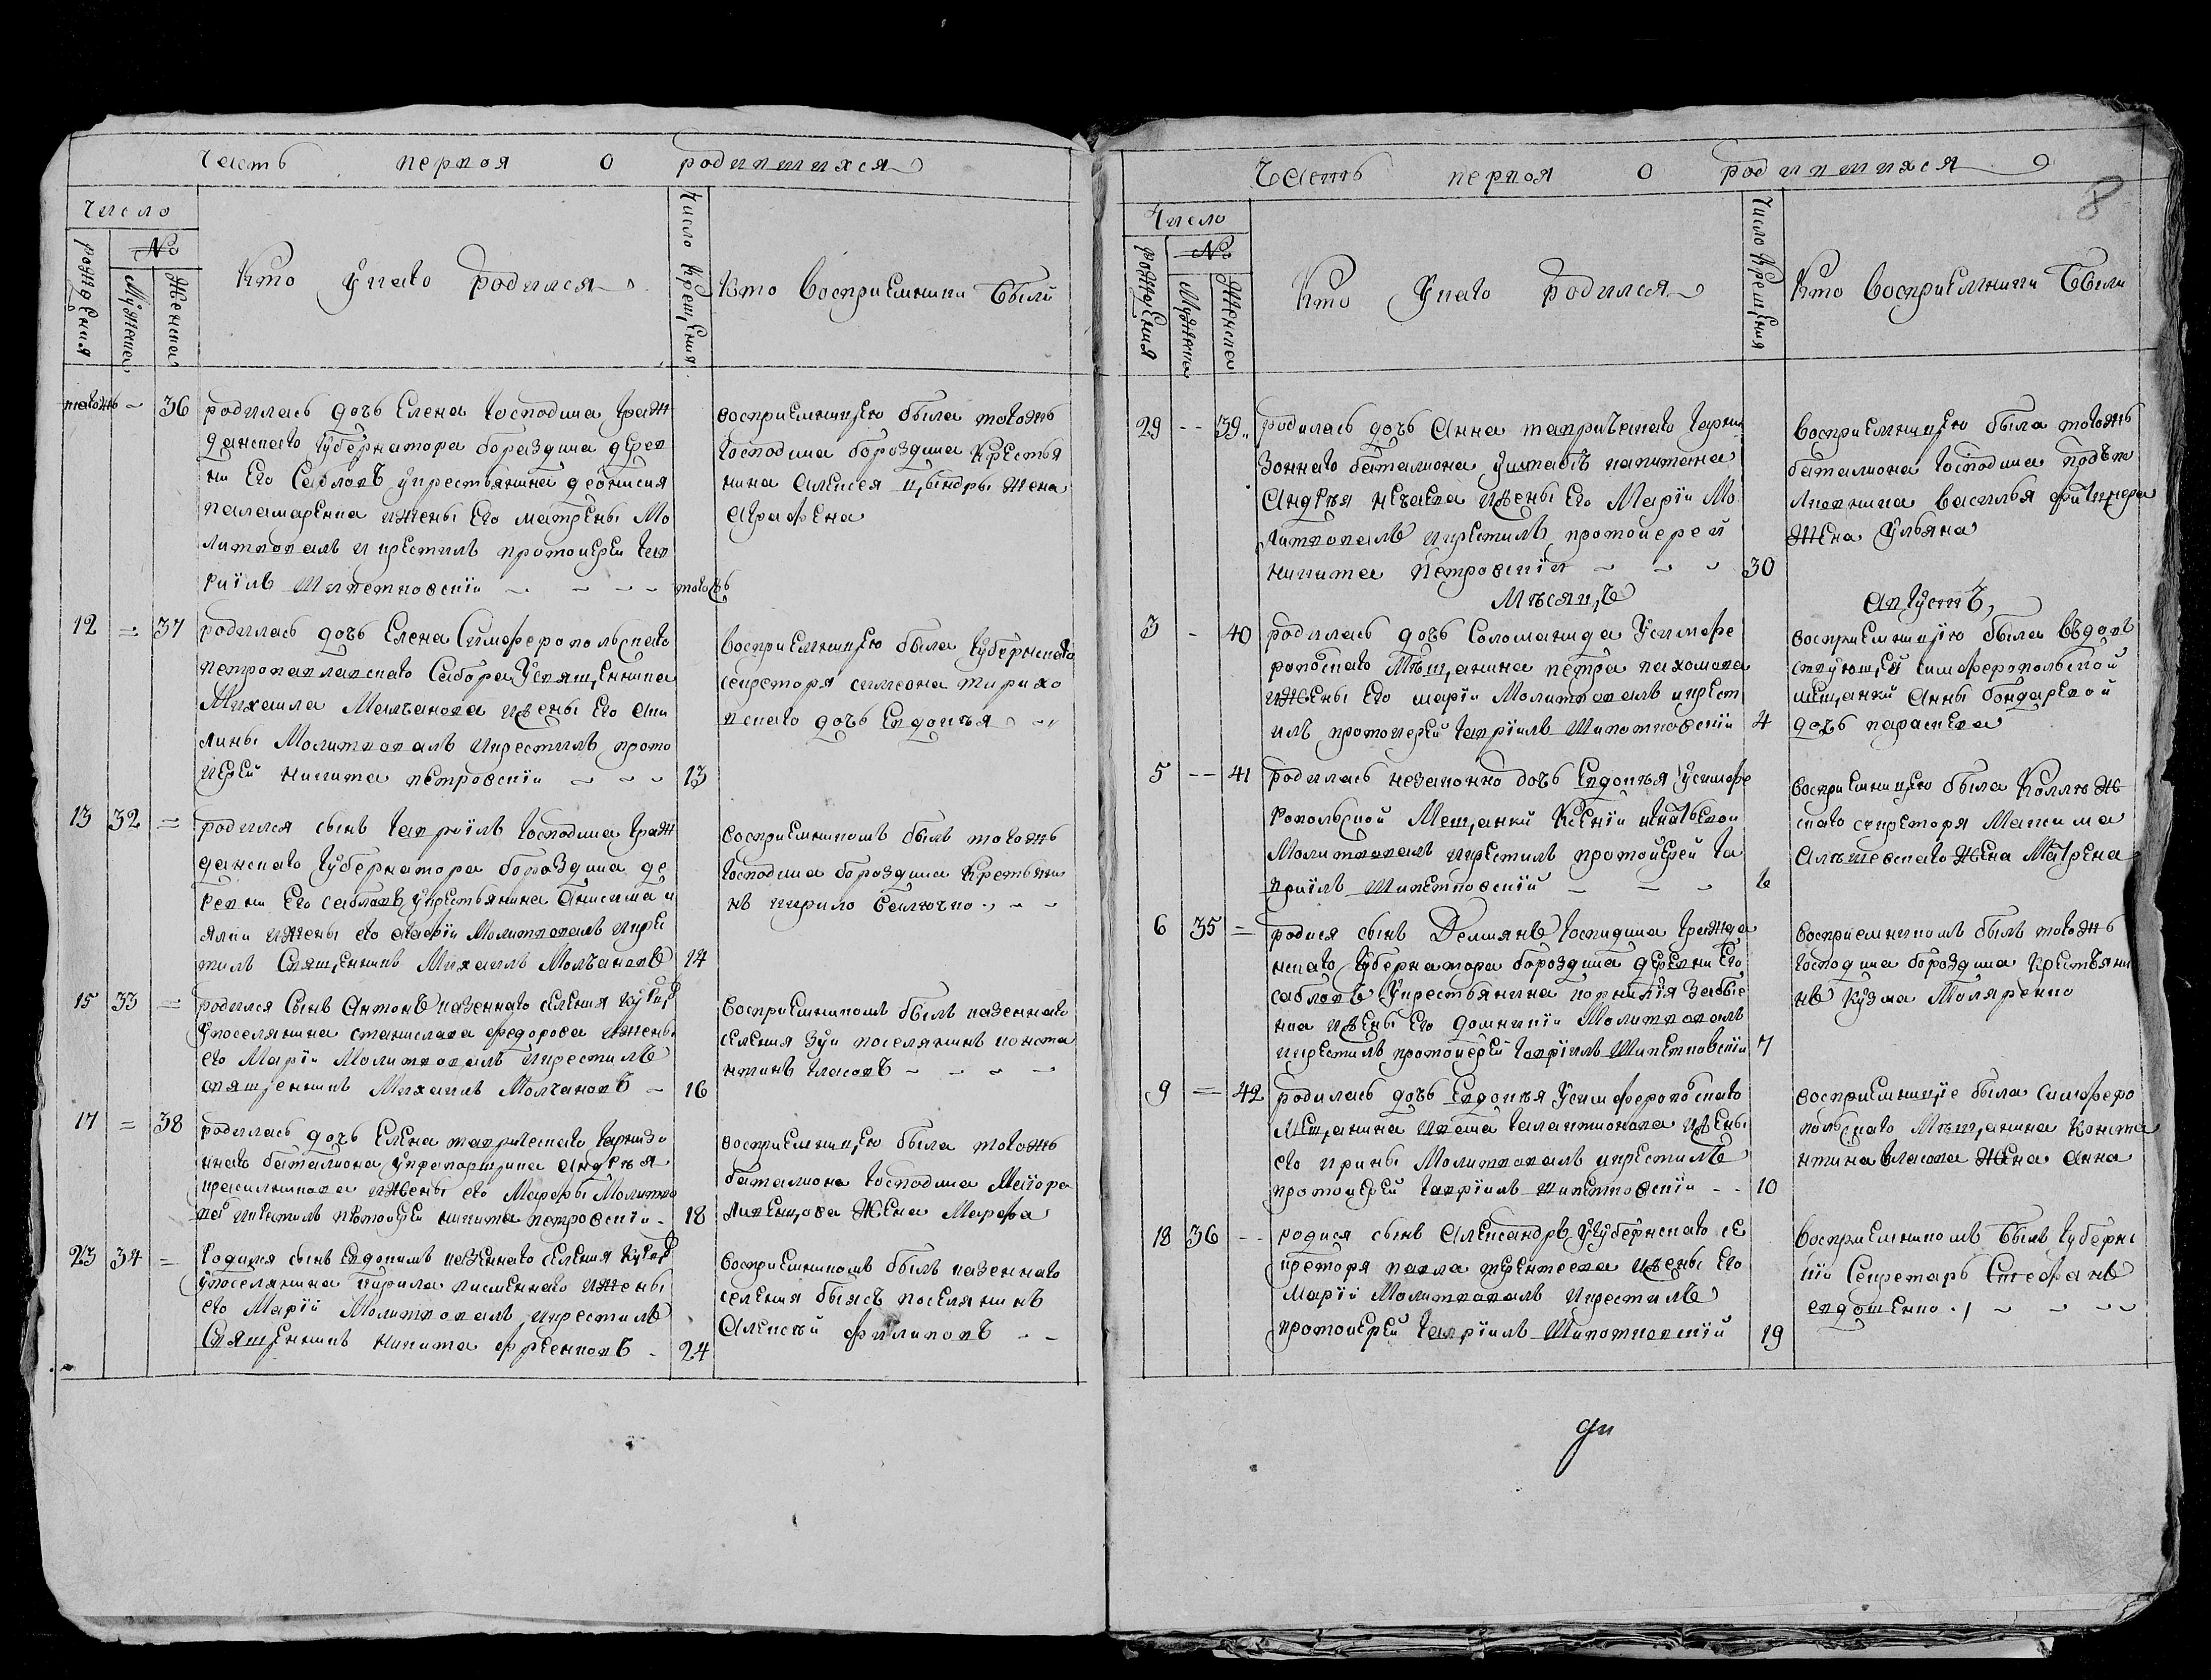 Часть первая о родившихся
Число
№
рождения
Мужеска
Женска
Кто у кого родился
Число крещения
Кто восприемники были
тогожъ - 36 родилась дочь Елена господина граж
данскаго губернатора бораздина дерев
ни его Сабловъ укрестьянина деонисия
паламаренка ижены его матрены Мо
литвовалъ и крестилъ протоиерей гав
риилъ тогожъ
восприемницею была тогожъ
господина бороздина крестья
нина алексея цындры жена
аграфена
12 = 37 родилась дочь Елена Симферопольскаго
петропавлавскаго Сабора Усвященника
Михаила Малчанова ижены его аки
лины Молитвовалъ икрестилъ прото
иерей никита петровскiи 13
восприемницею была губернскаго
секреторя симеона
дочь Евдокъя
13 32 = родился сынъ гавриилъ господина граж
данскаго губернатора бороздина де
ревни его сабловъ укрестьянина Анисима
ижены его Молитвовалъ икрес
тилъ Священникъ Михаилъ Молчановъ 14
восприемникомъ былъ тогожъ
господина бороздина Крестьяни
нъ кирило
15 33 = родился Сынъ Антонъ казеннаго селения
упоселянина станислава федорова ижены
его Марiи Молитвовалъ икрестилъ
священникъ Михаилъ Молчановъ - 16
восприемникомъ былъ казеннаго
селения Зуи поселянинъ конста
нтинъ власовъ
17 = 38 родилась дочь Елена таврическаго гарнизо
ннаго баталиона упрапорщика андръя
красильникова ижены его Марфы Молитво
валъ икрестилъ протоиерей никита петровскiи - 18
восприемницею была тогожъ
баталиона господина Маиора
жена Марфа
23 34 = Родился сынъ Евдокимъ казеннаго селения
упоселянина кирила писменнаго ижены
его Марiи Молитвовалъ икрестилъ
Священникъ никита ефременковъ - 24
восприемникомъ былъ казеннаго
селения поселянинъ
Алексъй филиповъ
Часть первая о родившихся
8
Число
№
рождения
Мужеска
Женска
Кто Укаго родился
Число Крещения
Кто Восприемники Были
29 -- 39 родилась дочь Анна таврическаго гарни
зоннаго баталиона Уштабсъ капитана
Андръя нъчаева ижены его Марiи Мо
литвовалъ икрестилъ протоиереи
никита Петровскiй 30
восприемницею была тогожъ
баталиона господина подъпо
лковника василья
жена Ульяна
Мъсяцъ Августъ
3 - 40 родилась дочь Соломанида Усимфе
ропоскаго Мъщанина петра пахомова
ижены его марiи Молитвовалъ икрест
илъ протоиерей гаврiилъ 4
восприемницiю была въдов
ствующей симферопольской
мещанки Анны бондаревой
дочь параскева
5 -- 41 родилась незаконно дочь Евдокъя Усимфе
ропольской Мещанки Ксенiи игнатьевои
Молитвовалъ икрестилъ протоиерей га
врiилъ 6
восприемницею была Коллеж
скаго секреторя Максима
жена Матрена
6 35 = родися сынъ Демиянъ господина гражда
нскаго губернатора бороздина деревни его
сабловъ Укрестьянина корнилiя
ижены его домникiи Молитвовалъ
икрестилъ протоиерей гаврiилъ 7
восприемникомъ былъ тогожъ
господина бороздина крестьяни
нъ кузма Моляренко
9 = 42 родилась дочь Евдокъя Усимферопоскаго
Мещанина ивана галактионова ижены
его ирины Молитвовалъ икрестилъ
протоиерей гаврiилъ -- 10
восприемницiе была симферо
польскаго Мъщанина Конста
нтина власова жена анна
18 36 -- родися сынъ Александръ Угубернскаго се
креторя павла терентева ижены его
Марiи Молитвовалъ икрестилъ
протоиерей гаврiилъ 19
восприемникомъ былъ губернс
кiи Секретарь Стефанъ
евдошенко